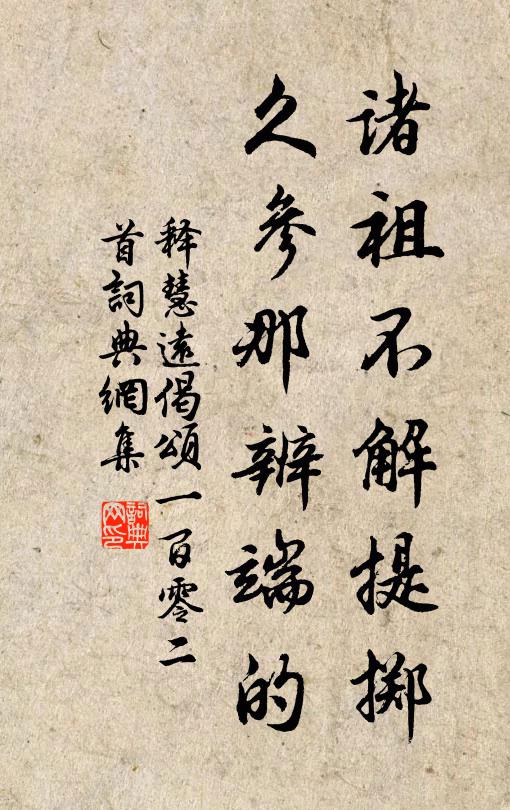 诸祖不解提掷
久参那辨端的
释慧远偈颂一百零二
首词典网集
词典网印